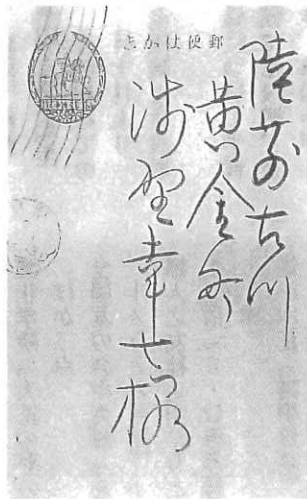 郵便はかき
陸前古川
黄金町
浅野幸七様